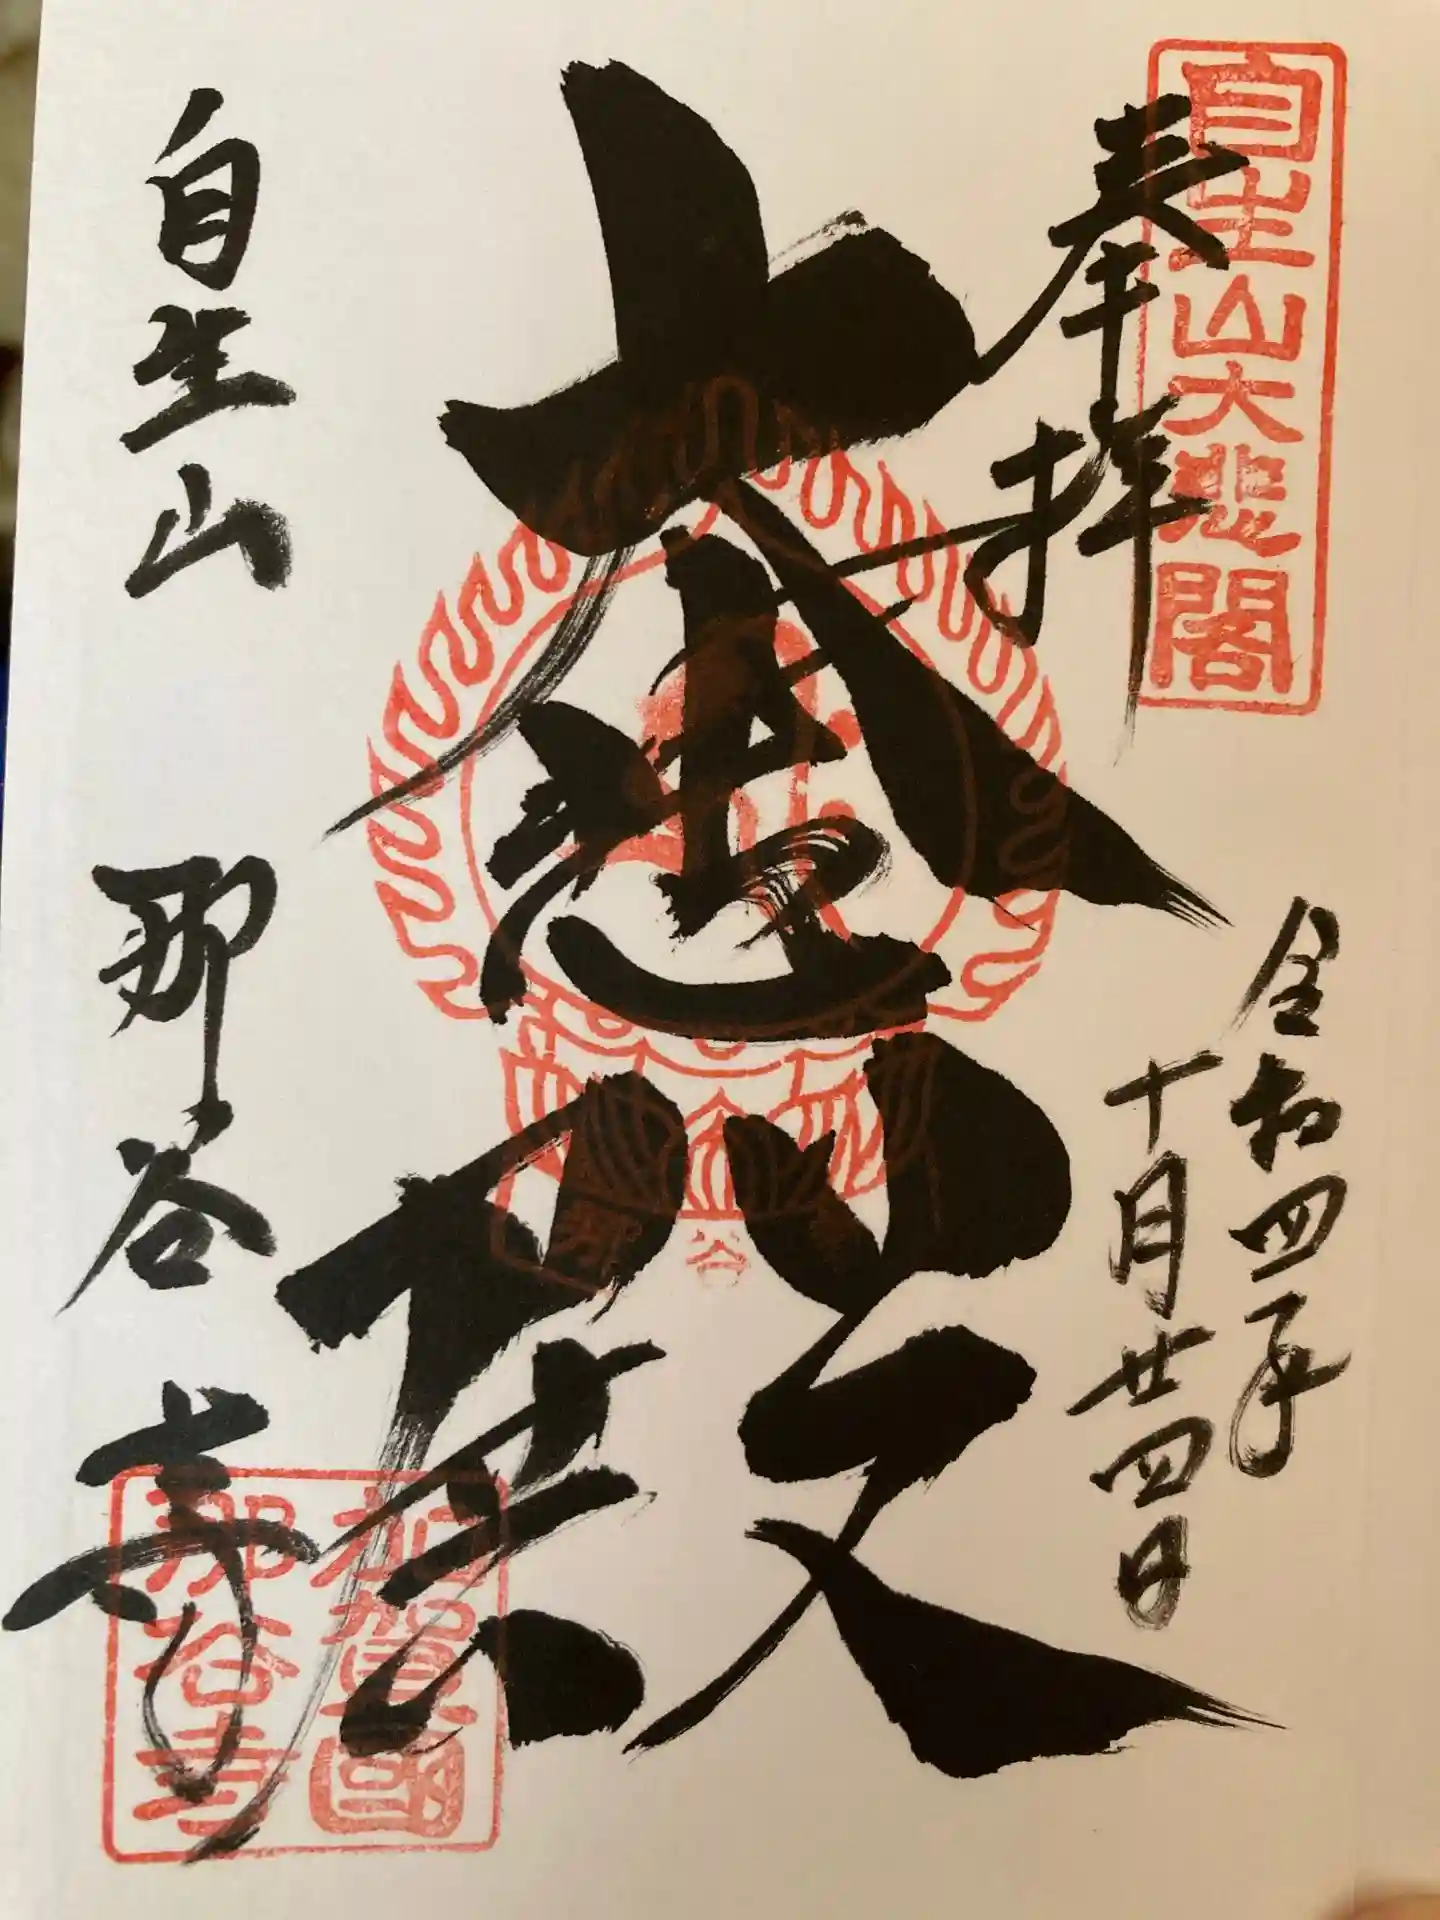 自生山大悲閣
奉拝
令和四年
十月廿四日
大悲殿
自生山 那谷寺
谷
加賀國
那谷寺